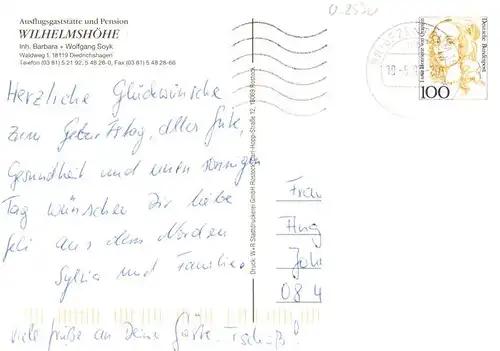 Ausflugsgaststätte und Pension
WILHELMSHÖHE
Inh. Barbara + Wolfgang Soyk
Waldweg 1, 18119 Diedrichshagen
Telefon (03 81) 5 21 92, 5 48 28-0, Fax (03 81) 5 48 28-66
Herzliche Glückwünsche
zum Geburtstag, alles Gute,
Gesundheit und einen sonnigen
Tag wünschen Dir liebe
aus dem Norden
Sylvia und Familie.
viele Grüße an Deine Gäste. Tschüß!
Druck: W+R Stadtdruckerei GmbH Rostock, Carl-Hopp-Straße 12, 18069 Rostock
BRIEFZEN
Deutsche Bundespost
Luise Henriette von Oranien
100
Frau
Joh
08 4